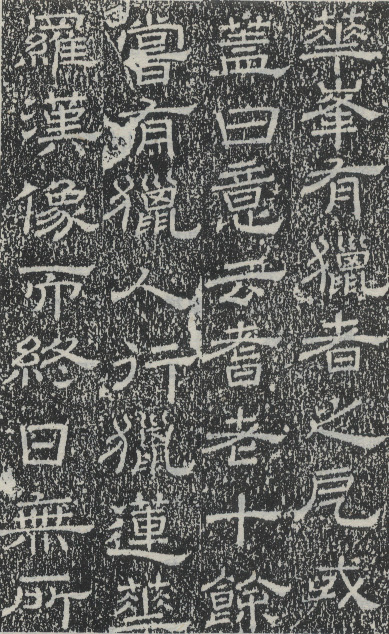 華峯有獵者之或
蓋曰意云耆老十餘
嘗有獵人行獵蓮華
羅漢像而終日無所